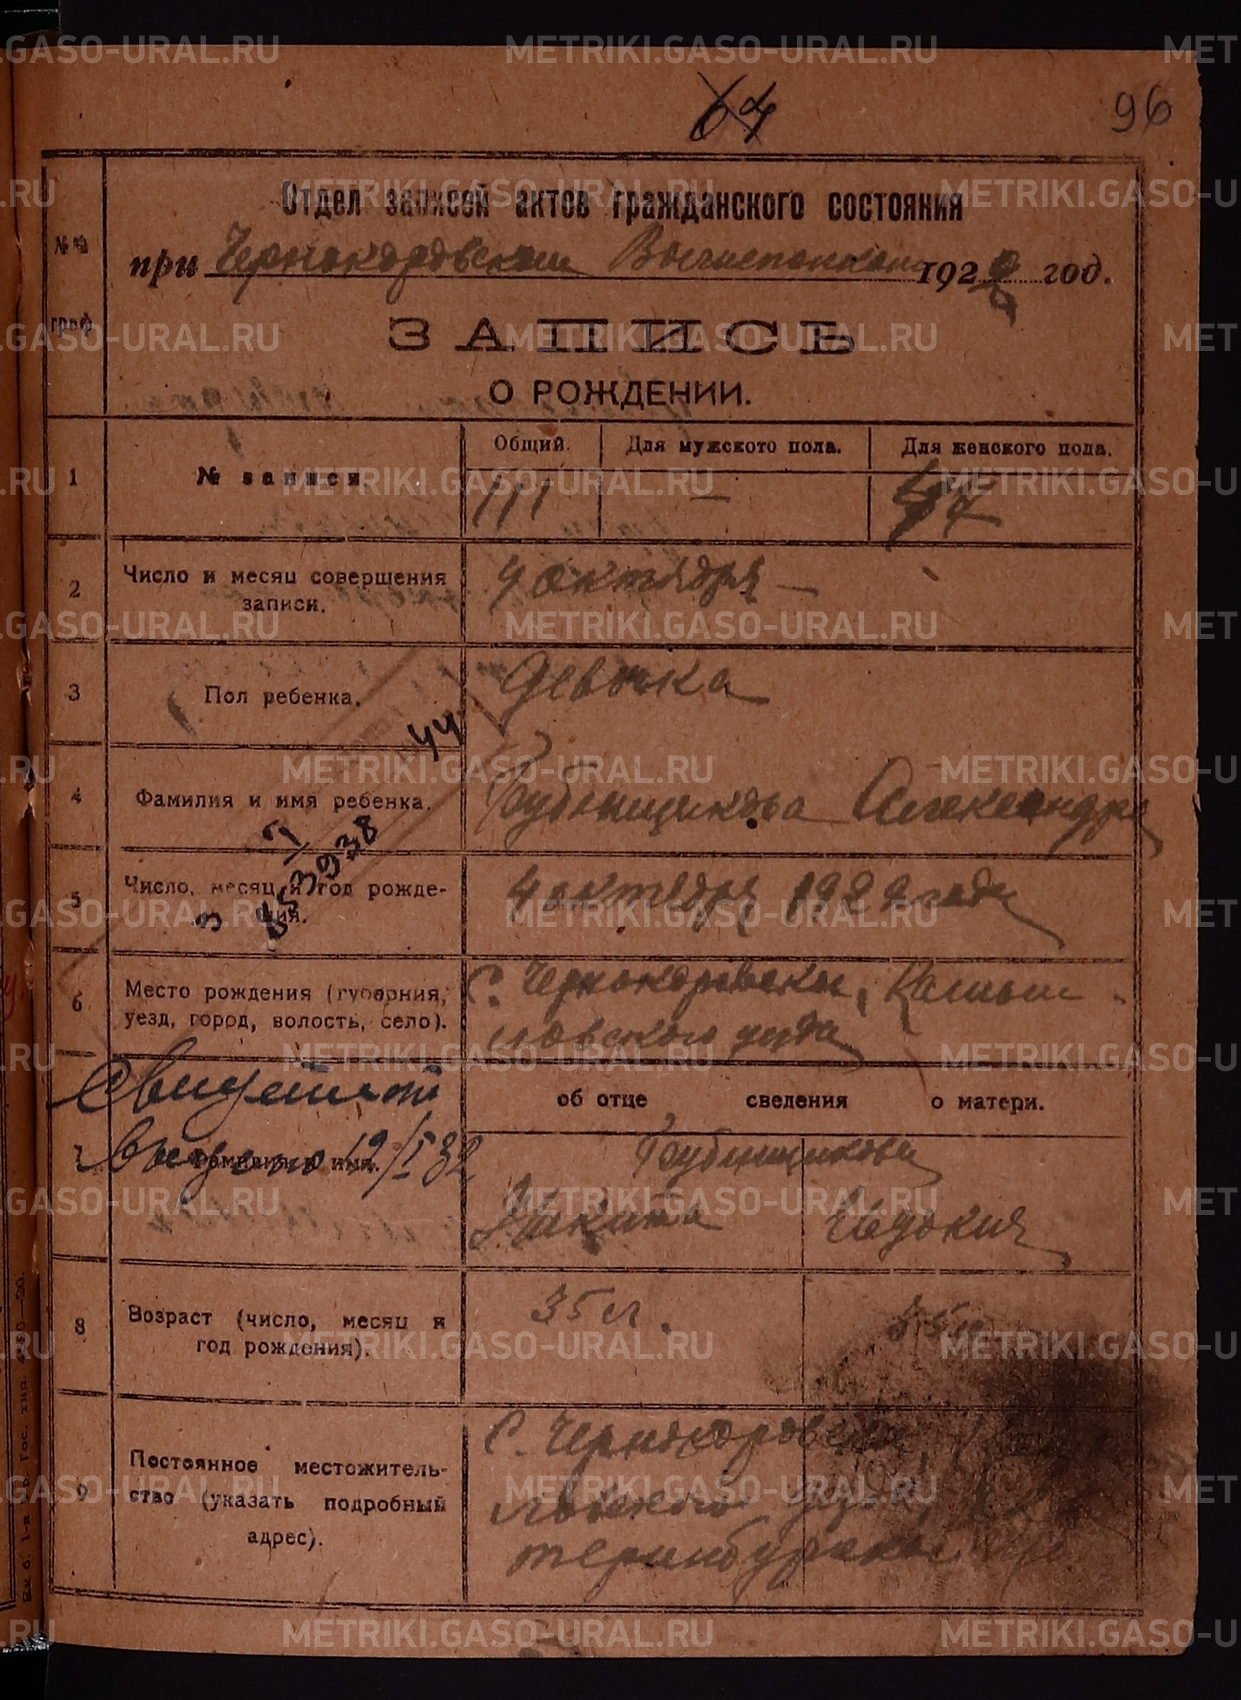 64
96
Отдел записей актов гражданского состояния
при Чернокоровском Волисполкоме 1922 год.
№№ граф
ЗАПИСЬ
О РОЖДЕНИИ.
1 № записи Общий. Для мужского пола. Для женского пола.
111 — 57
2 Число и месяц совершения записи. 4 октября
3 Пол ребенка. Девочка
44
4 Фамилия и имя ребенка. Александра
5 Число, месяц и год рождения. 4 октября 1922 года
6 Место рождения (губерния, С. Чернокоровское, Камыш-
уезд, город, волость, село). ловского уезда
Свидетельст
выдано 19/I 32
об отце сведения о матери.
7 Фамилия и имя.
Никита Евдокия
8 Возраст (число, месяц и 35 л. 35 л.
год рождения).
9 Постоянное местожитель- С. Чернокоровское
ство (указать подробный ловского уезда
адрес). теринбургской губ.
METRIKI.GASO-URAL.RU